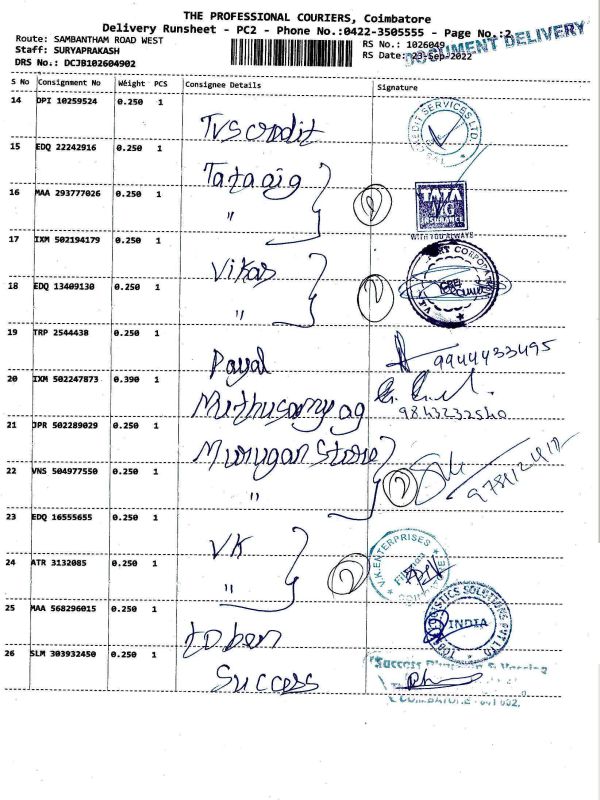 THE PROFESSIONAL COURIERS, Coimbatore
Delivery Runsheet - PC2 - Phone No.:0422-3505555 - Page No.:2
DOCUMENT DELIVERY
Route: SAMBANTHAM ROAD WEST
RS No.: 1026049
Staff: SURYAPRAKASH
RS Date: 23-Sep-2022
DRS No.: DCJB102604902
S No Consignment No Weight PCS Consignee Details Signature
14 DPI 10259524 0.250 1
Tvs credit
CREDIT SERVICES LTD
15 EDQ 22242916 0.250 1
Tata aig
16 MAA 293777026 0.250 1
"
2
TATA AIG INSURANCE
WITH YOU ALWAYS
17 IXM 502194179 0.250 1
Vikas
18 EDQ 13409130 0.250 1
"
2
19 TRP 2544438 0.250 1
Payal
9944433495
20 IXM 502247873 0.390 1
Muthusamy ag
9843232540
21 JPR 502289029 0.250 1
Murugan Store
22 VNS 504977550 0.250 1
"
2
23 EDQ 16555655 0.250 1
VK
V.K. ENTERPRISES
24 ATR 3132085 0.250 1
"
2
25 MAA 568296015 0.250 1
toben
LOGISTICS SOLUTIONS PVT LTD
INDIA
26 SLM 303932450 0.250 1
Success
Success